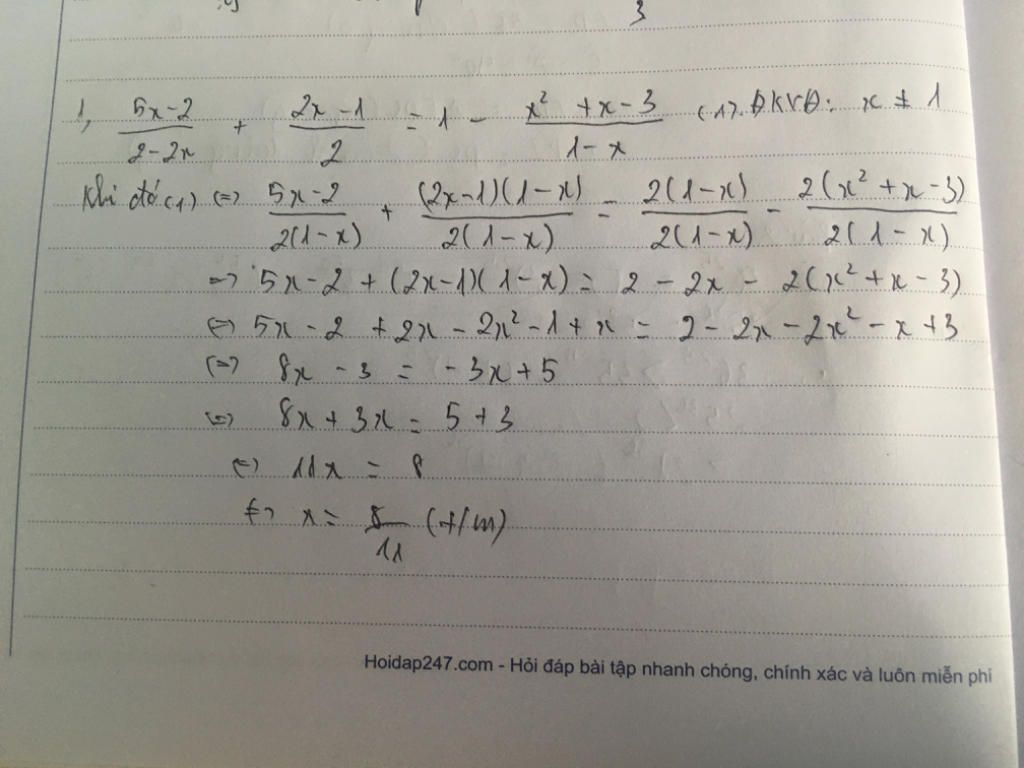 3
1, \frac{5x-2}{2-2x} + \frac{2x-1}{2} = 1 - \frac{x^2+x-3}{1-x} (1). ĐKXĐ: x ≠ 1
Khi đó (1) (=) \frac{5x-2}{2(1-x)} + \frac{(2x-1)(1-x)}{2(1-x)} = \frac{2(1-x)}{2(1-x)} - \frac{2(x^2+x-3)}{2(1-x)}
=> 5x-2 + (2x-1)(1-x) = 2 - 2x - 2(x^2+x-3)
(=) 5x - 2 + 2x - 2x^2 - 1 + x = 2 - 2x - 2x^2 - x + 3
(=) 8x - 3 = -3x + 5
(=) 8x + 3x = 5 + 3
(=) 11x = 8
(=) x = \frac{8}{11} (t/m)
Hoidap247.com - Hỏi đáp bài tập nhanh chóng, chính xác và luôn miễn phí